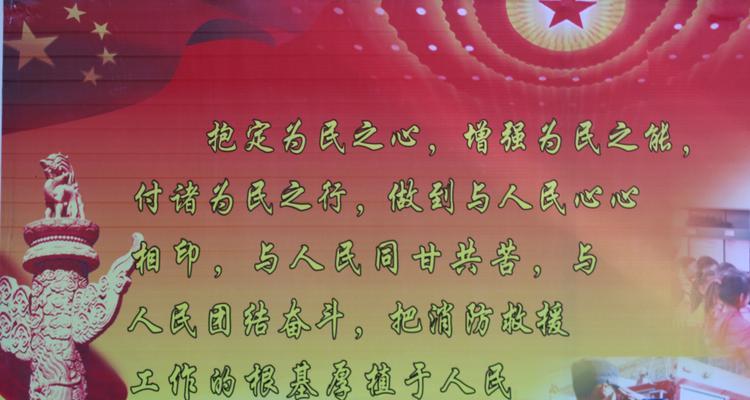 抱定为民之心，增强为民之能，
付诸为民之行，做到与人民心心
相印，与人民同甘共苦，与
人民团结奋斗，把消防救援
工作的根基厚植于人民